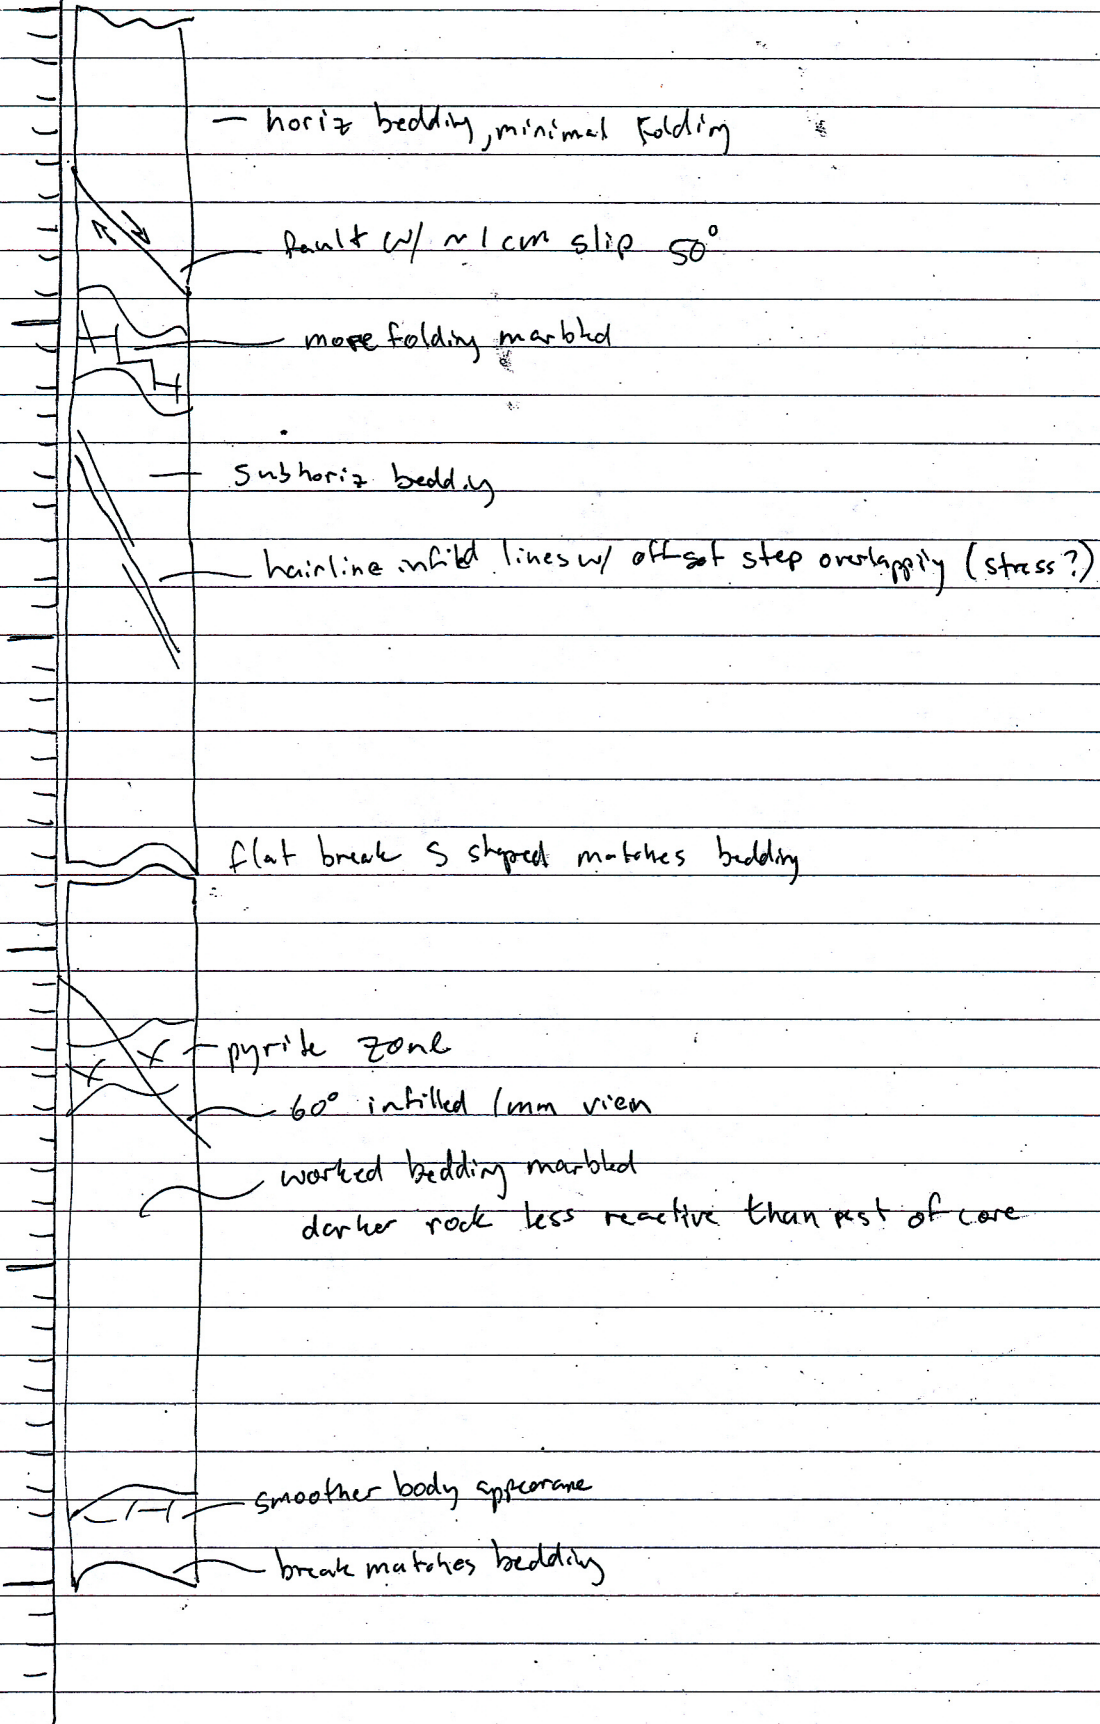 — horiz bedding, minimal folding
fault w/ ~1 cm slip 50°
more folding marbled
subhoriz bedding
hairline infilled lines w/ offset step overlapping (stress?)
flat break S shaped matches bedding
pyrite zone
60° infilled 1mm vien
worked bedding marbled
darker rock less reactive than rest of core
smoother body appearane
break matches bedding